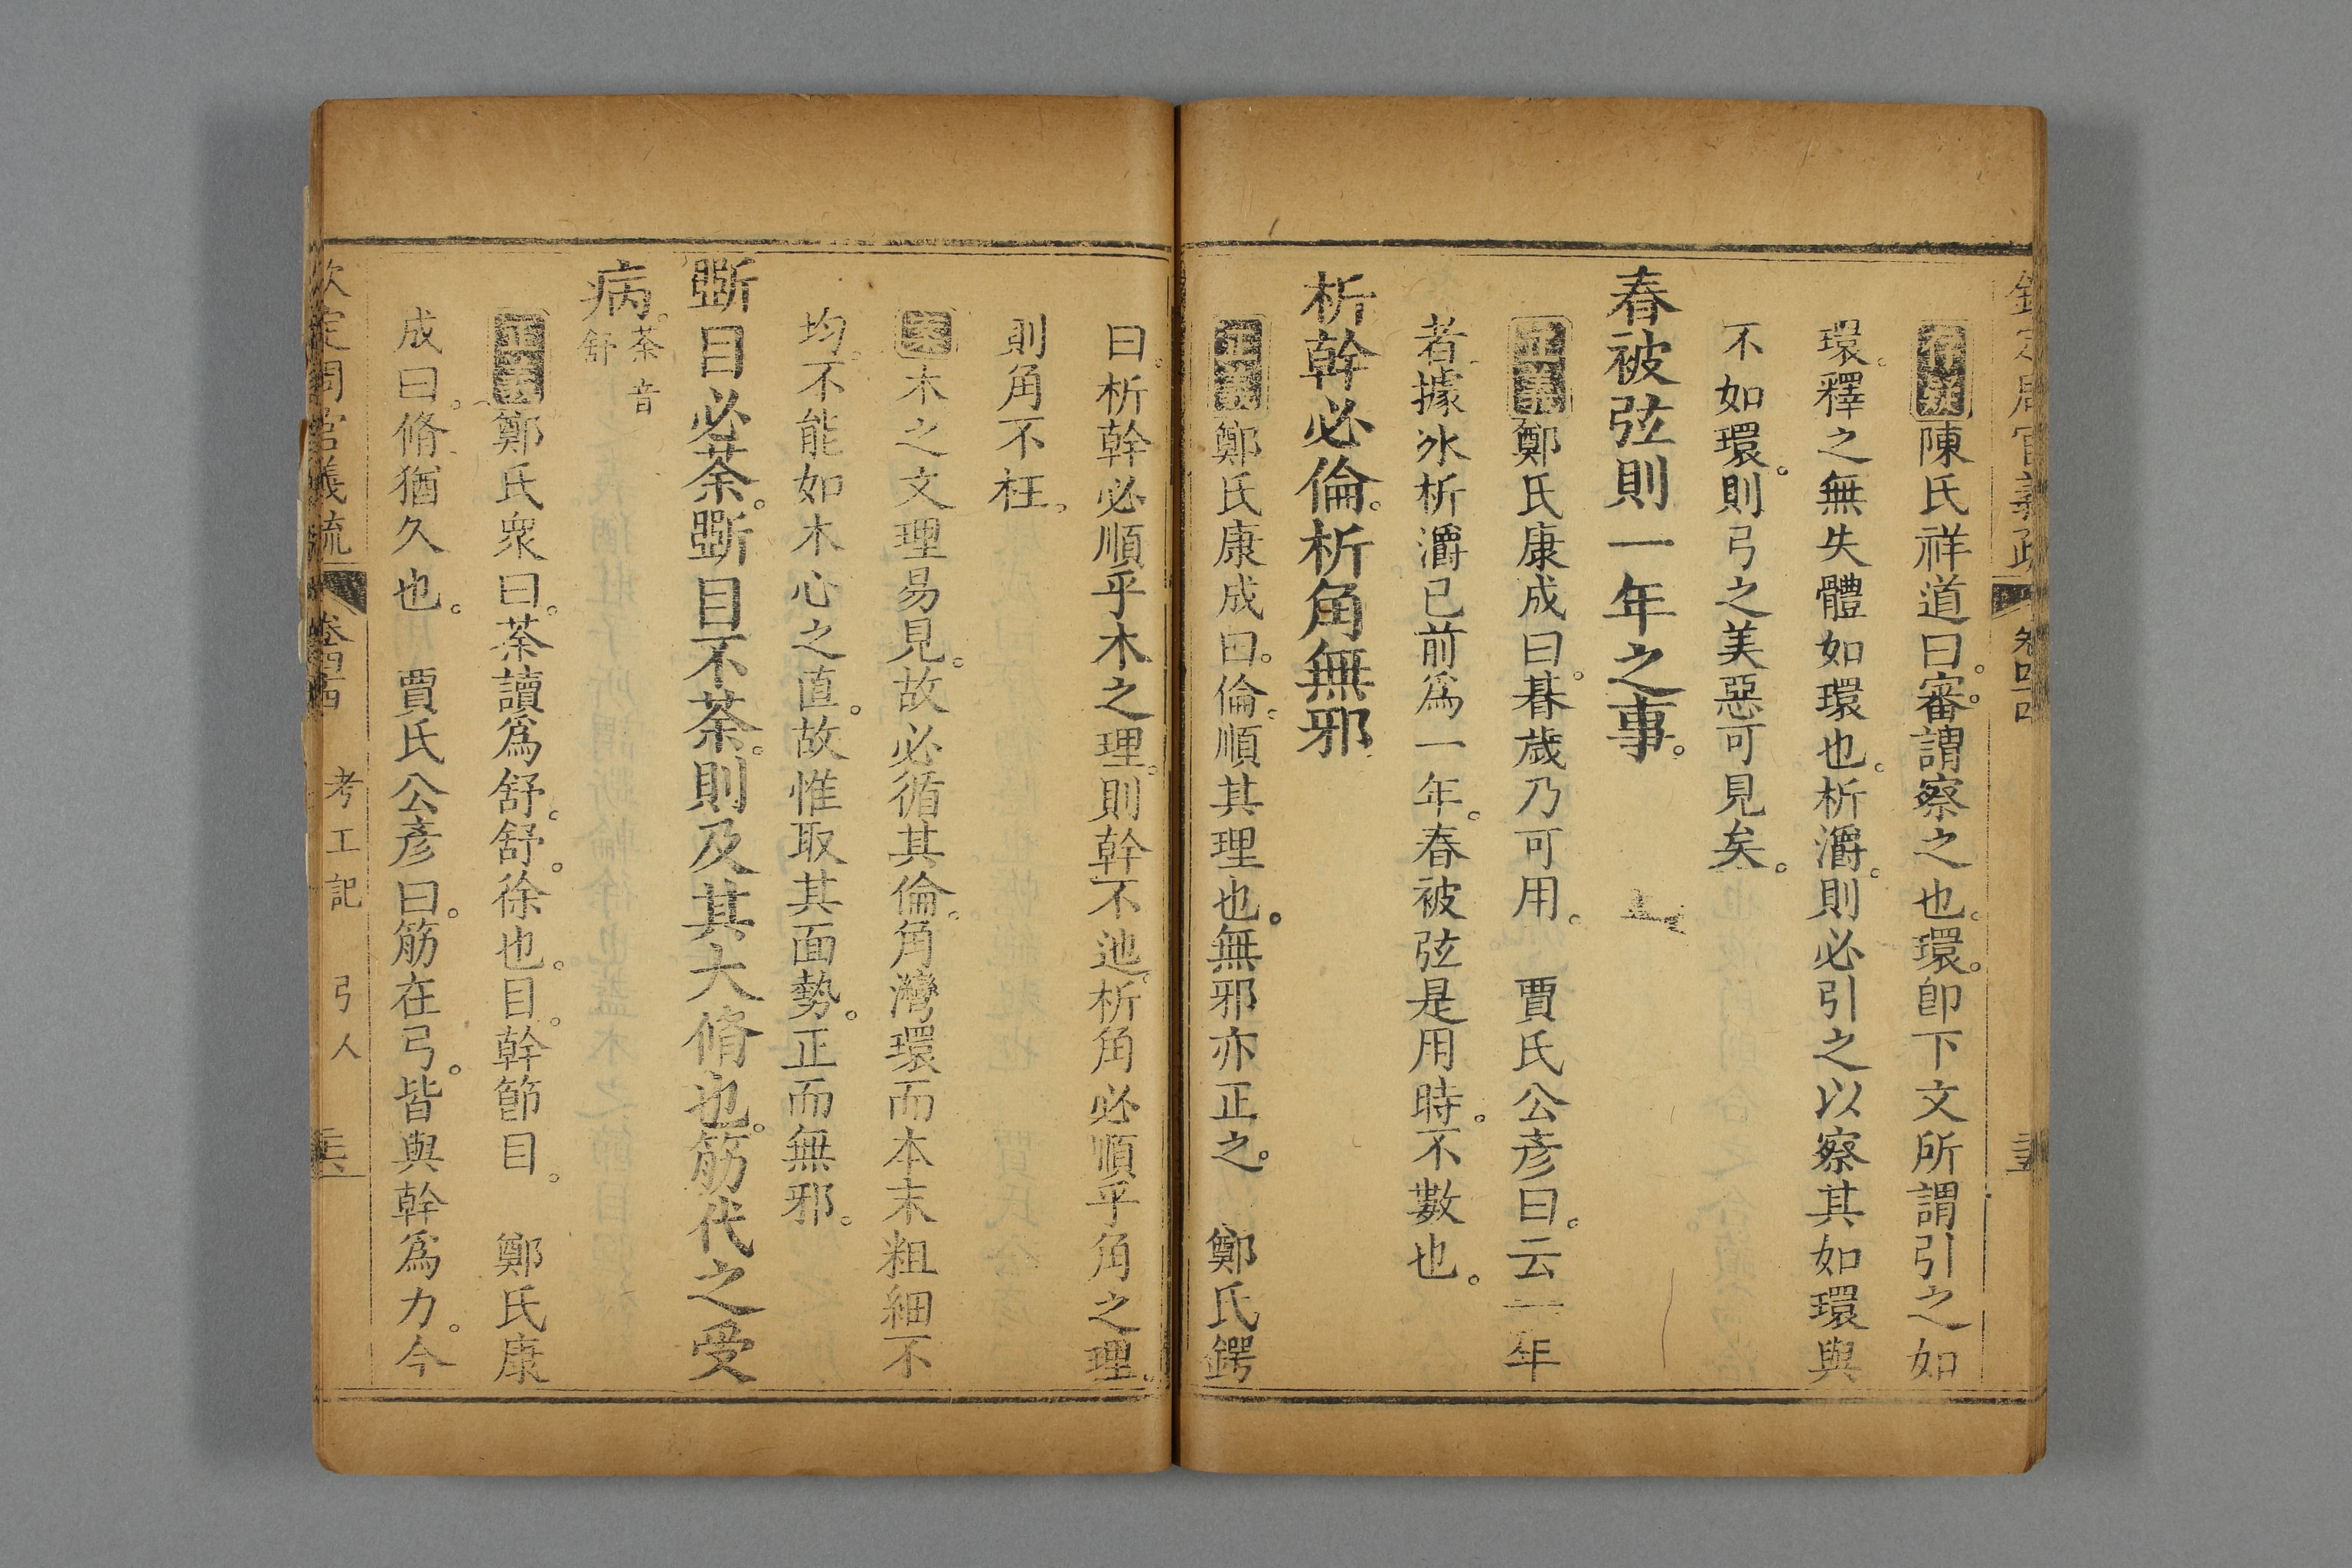 陳氏祥道曰。審謂察之也。環。卽下文所謂引之如
環。釋之無失體如環也。析灂。則必引之以察其如環與
不如環。則弓之美惡可見矣。
春被弦則一年之事。
正義鄭氏康成曰。朞歲乃可用。 賈氏公彥曰。云一年
者。據冰析灂已前爲一年。春被弦是用時。不數也。
析幹必倫。析角無邪
正義鄭氏康成曰。倫。順其理也。無邪亦正之。 鄭氏鍔
曰。析幹必順乎木之理。則幹不迆。析角必順乎角之理。
則角不枉。
案木之文理易見。故必循其倫。角灣環而本末粗細不
均。不能如木心之直。故惟取其面勢。正而無邪。
斲目必荼。斲目不荼。則及其大脩也。筋代之受
病。荼音舒
正義鄭氏衆曰。荼讀爲舒。舒。徐也。目。幹節目。 鄭氏康
成曰。脩。猶久也。 賈氏公彥曰。筋在弓。皆與幹爲力。今
欽定周官義疏 卷四十四 考工記 弓人